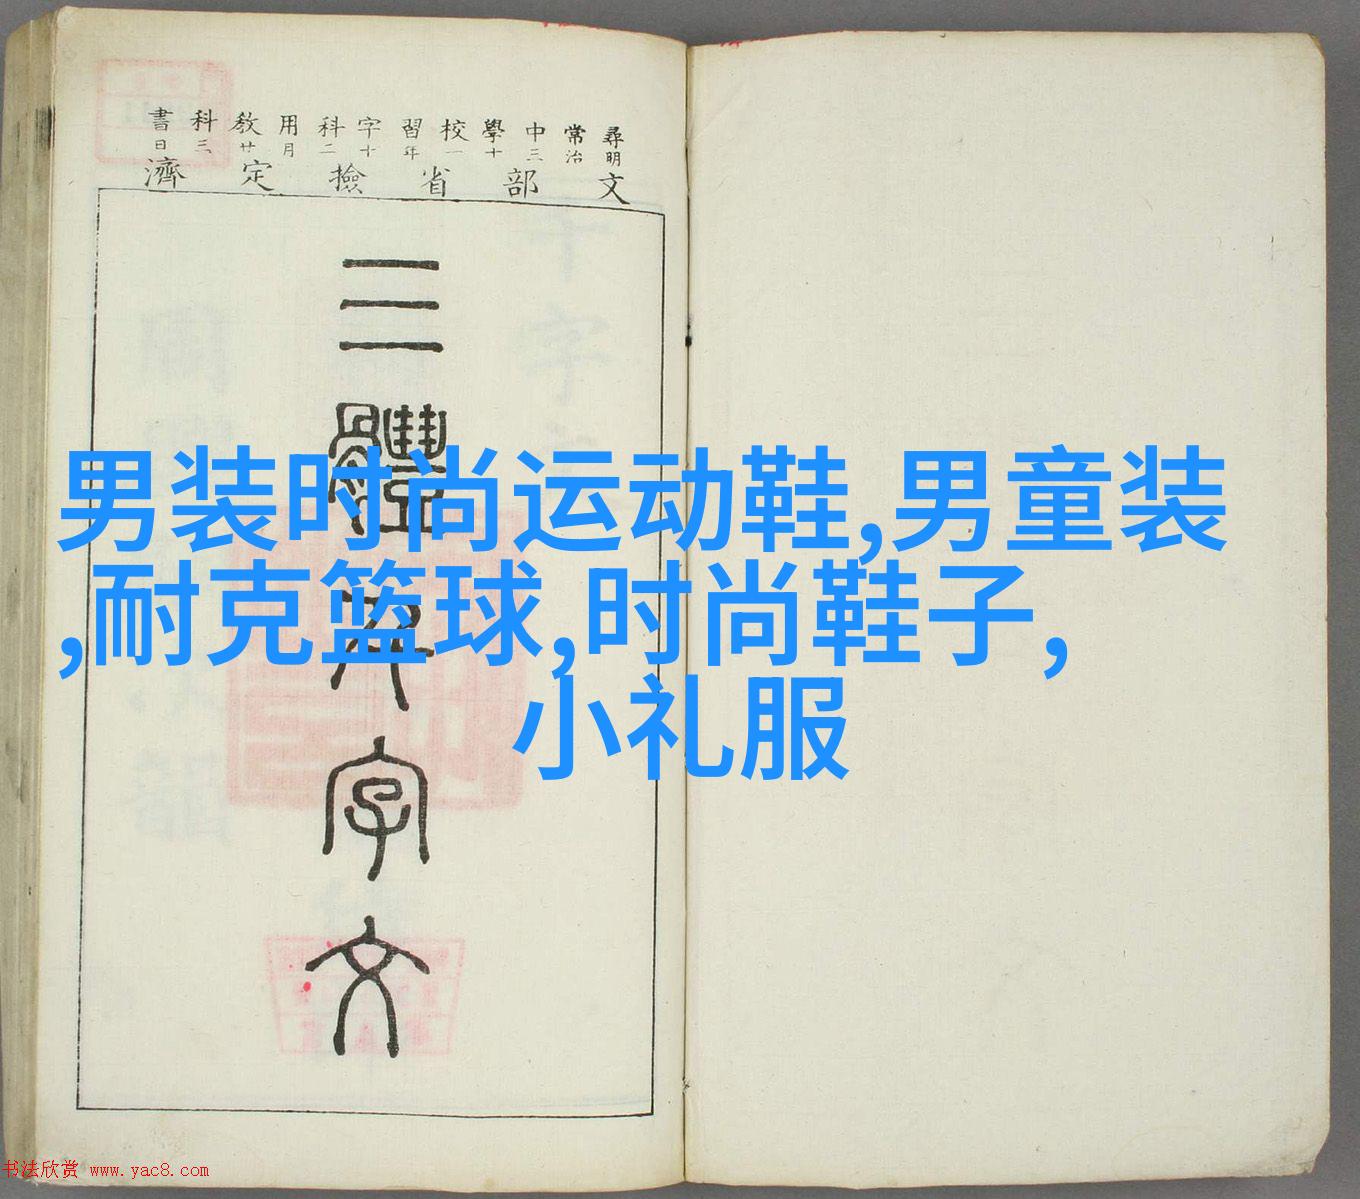 尋常中學校習字科用教科書
明治三十一年十二月廿三日
文部省撿定濟
三體千字文
男装时尚运动鞋,男童装
,耐克篮球,时尚鞋子,
小礼服
书法欣赏 www.yac8.com